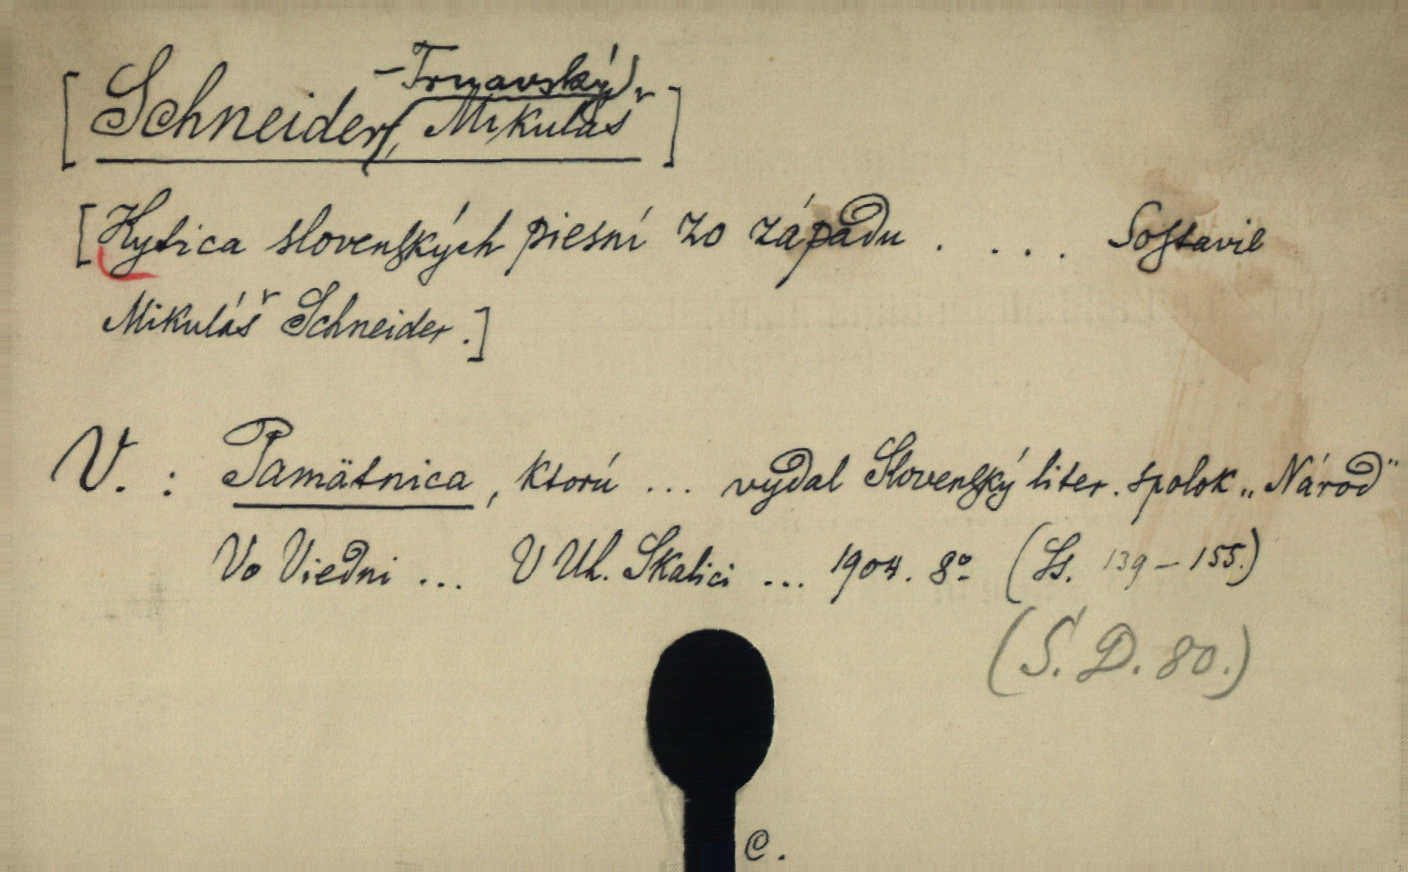 [Schneider-Trnavský, Mikuláš]
[Kytica slovenských piesní zo západu . . . . Sostavil
Mikuláš Schneider.]
V. : Pamätnica, ktorú ... vydal Slovenský liter. spolok „Národ"
Vo Viedni ... V Uh. Skalici ... 1904. 8º (Ss. 139–155.)
(S. D. 80.)
C.